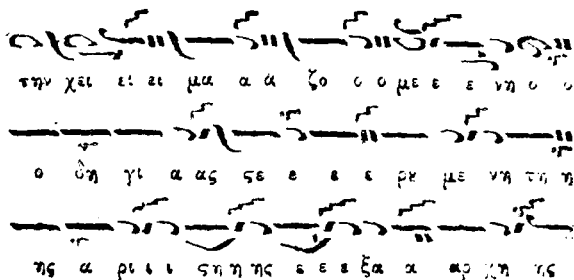 την χει ει ει μα α α ζο ο ο με ε ε νη ο ο
ο δη γι α ας σε ε ε ε ρε με νη τη η
ης α ρι ι ι ςη η ης ε ε ε ξα α αρ χη ης